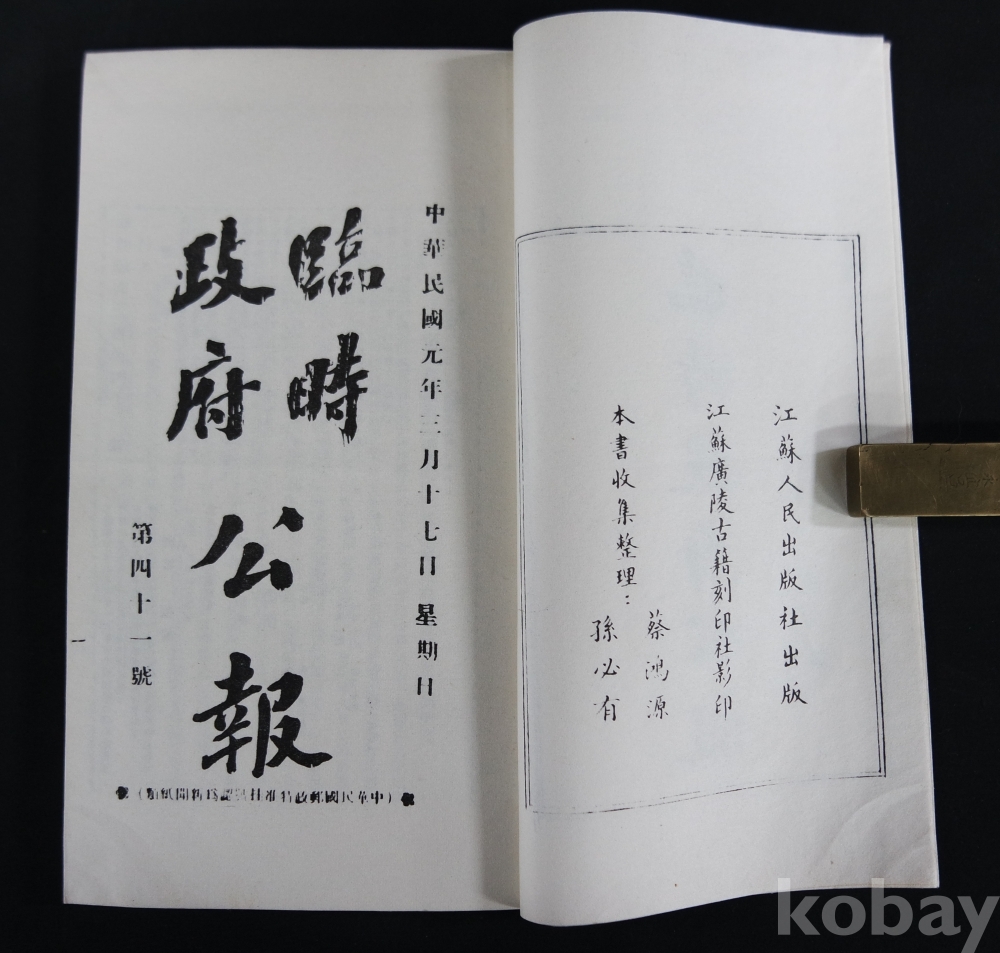 江蘇人民出版社出版
江蘇廣陵古籍刻印社影印
本書收集整理：
蔡鴻源
孫必有
中華民國元年三月十七日 星期日
臨時
政府
公報
第四十一號
（中華民國郵政特准挂號認爲新聞紙類）
kobay